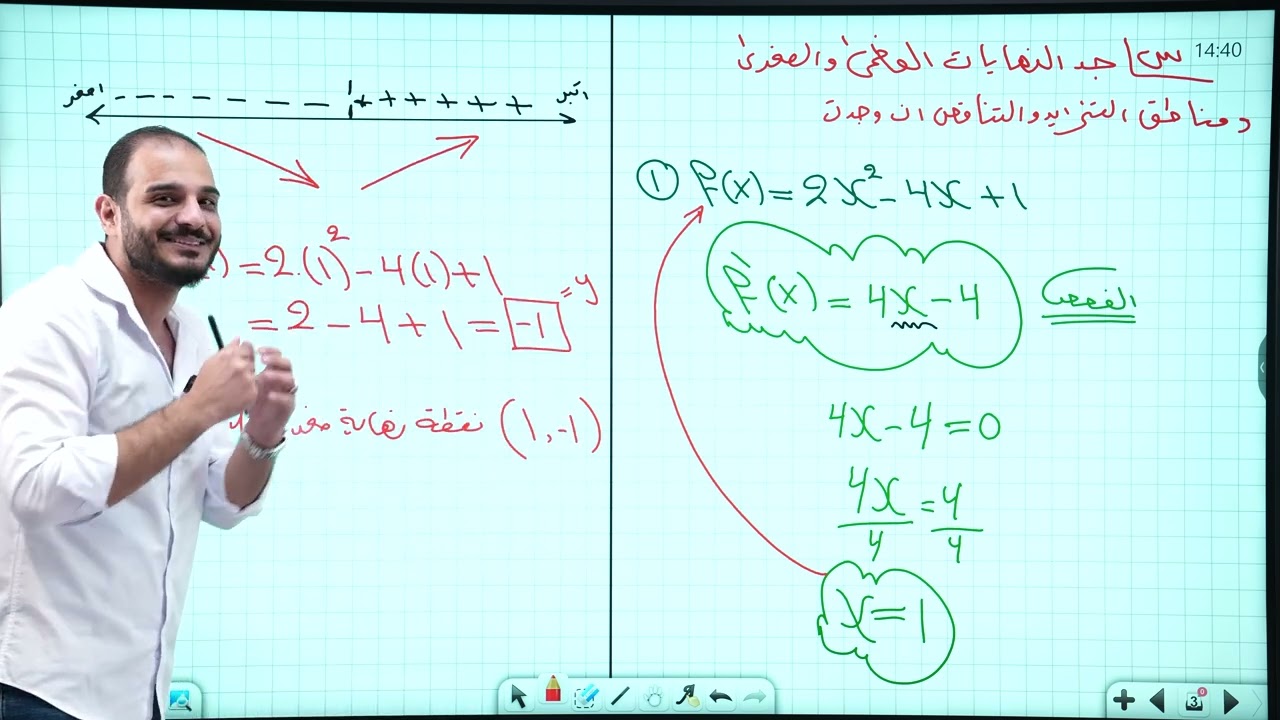 14:40
س/ جد النهايات العظمى والصغرى
ومناطق التزايد والتناقص ان وجدت
① f(x) = 2x² - 4x + 1
f'(x) = 4x - 4
الفحص
4x - 4 = 0
4x/4 = 4/4
x = 1
اصغر - - - - - - - 1 + + + + + + اكبر
) = 2.(1)² - 4(1) + 1
= 2 - 4 + 1 = -1 = y
(1, -1) نقطة نهاية
3